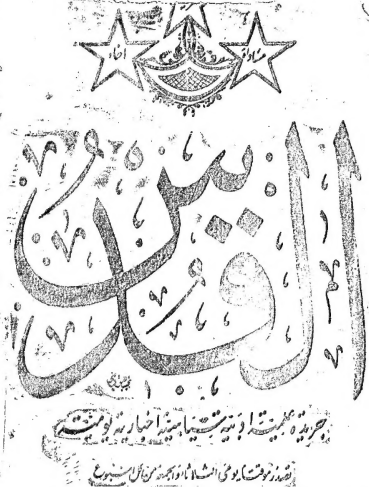 مساواة اخاء
القدس
جريدة علمية ادبية سياسية اخبارية يومية
تصدر موقتا يومي الثلاثاء والجمعة من كل اسبوع